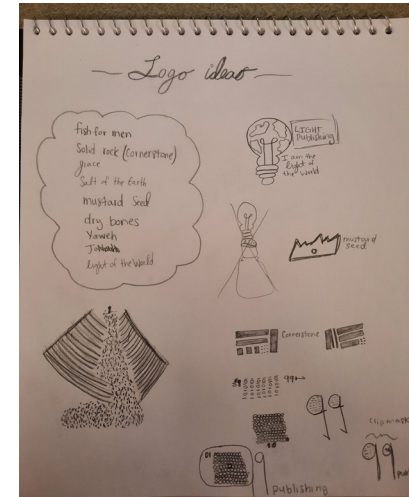 Logo ideas
fish for men
Solid rock (Cornerstone)
grace
Salt of the Earth
mustard Seed
dry bones
Yaweh
light of the World
LIGHT
Publishing
I am the
light of
the world
mustard
seed
Cornerstone
99
publishing
Clip mask
99